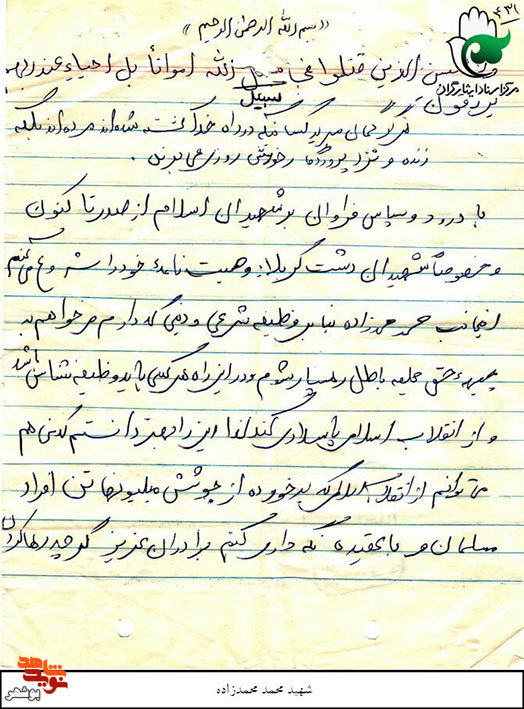 «بسم الله الرحمن الرحیم»
۴۳۱
مرکز اسناد ایثارگران
الذین قتلوا فی سبیل الله امواتاً بل احیاء عند ربهم
یرزقون
گمان مبرید کسانیکه در راه خدا کشته شده‌اند مرده‌اند بلکه
زنده و نزد پروردگار خودش روزی می‌برند.
با درود و سپاس فراوان بر شهیدان اسلام از صدر تا کنون
و خصوصاً شهیدان دشت کربلا: وصیت نامهٔ خود را شروع می‌کنم
اینجانب محمد محمدزاده بنا بر وظیفه شرعی و دینی که دارم میخواهم به
جبههٔ حق علیه باطل رهسپار شوم و در این راه هر کسی باید وظیفه شناس باشد
و از انقلاب اسلامی پاسداری کند لذا این را بهتر دانستم که من هم
می توانم از انقلاب اسلامی که برخورده از جوشش میلیونها تن افراد
مسلمان و با عقیده نگه داری کنم برادران عزیز گرچه رها کردن
شاهد
نوید
بوشهر
شهید محمد محمدزاده